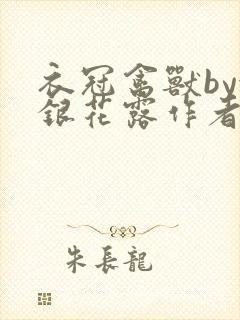 衣冠禽獸by
銀花露作者
朱長龍